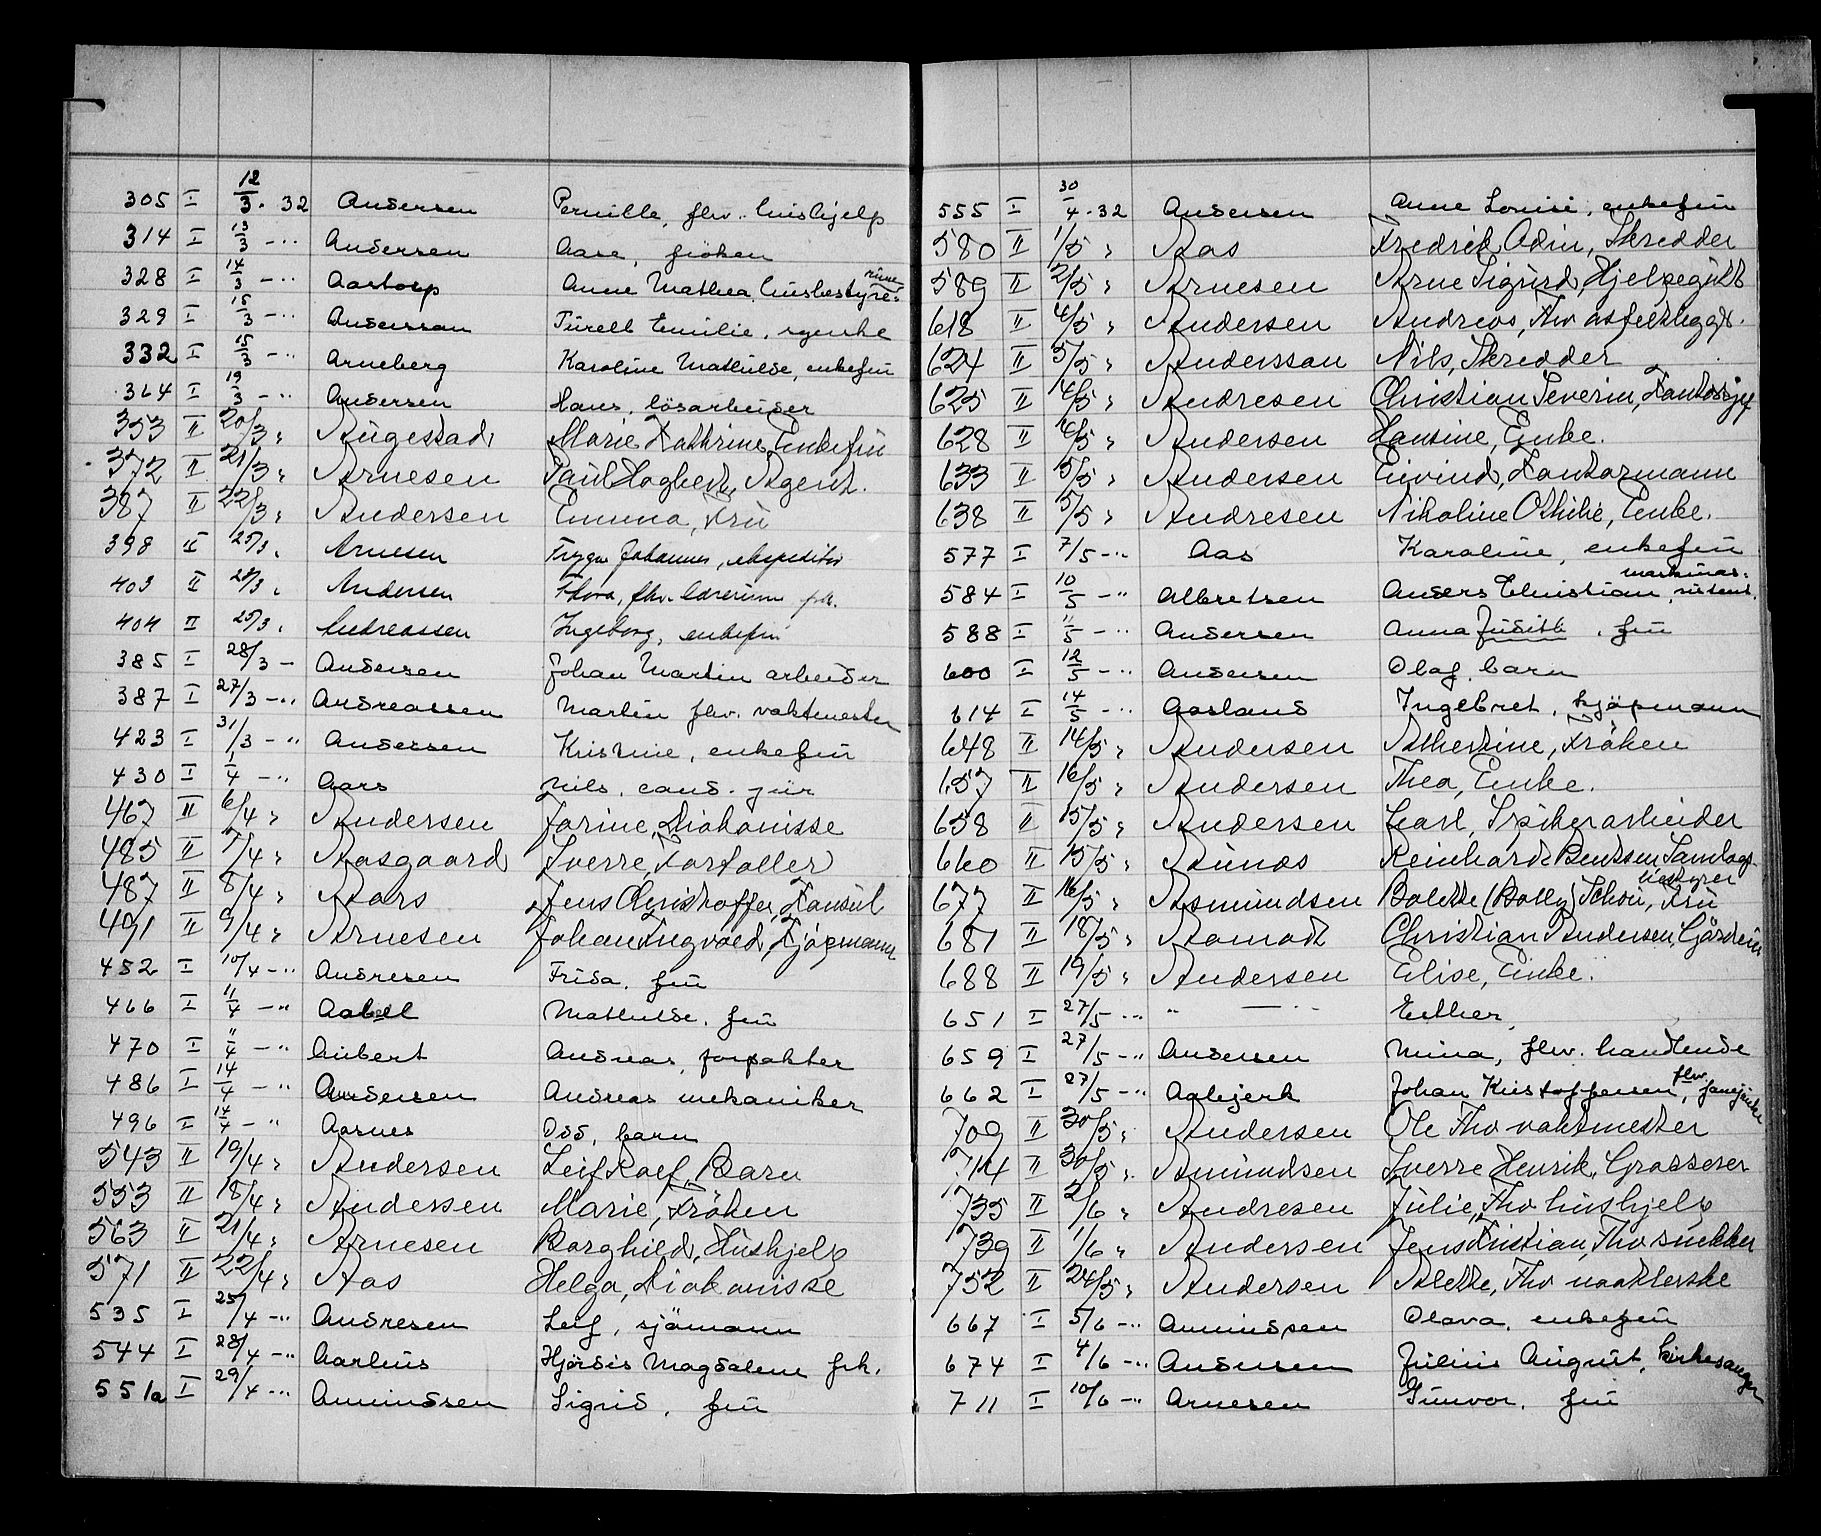 305 I 12/3 . 32 Andersen Pernille, fhv. hushjelp
314 I 13/3 - .. Andersen Aase, fröken
328 I 14/3 - .. Aastorp Anne Mathea, husbestyrerinne
329 I 15/3 - .. Anderssan Turell Emilie, syerske
332 I 15/3 - .. Arneberg Karoline Mathilde, enkefru
364 I 19/3 - .. Andersen Hans, lösarbeider
353 II 20/3 " Augestad Marie Kathrine, Enkefru
372 II 21/3 " Arnesen Paul Hagbert, Agent.
387 II 22/3 " Andersen Emma, Fru
398 II 25/3 " Arnesen Trygve Johannes, ekspeditör
403 II 28/3 " Andersen Thora, fhv. lærerinne frk.
404 II 25/3 " Andreassen Ingeborg, enkefru
385 I 28/3 - Andersen Johan Martin arbeider
387 I 27/3 - .. Andreassen Martin fhv. vaktmester
423 I 31/3 - .. Andersen Kristine, enkefru
430 I 1/4 - .. Aars Nils, cand. jur
467 II 6/4 " Andersen Jorine, Diakonisse
485 II 7/4 " Aasgaard Sverre, Forfatter
487 II 8/4 " Aars Jens Christoffer, Konsul
491 II 9/4 " Arnesen Johan Ingvald, Kjøpmann
452 I 10/4 - .. Andresen Frida, fru
466 I 11/4 - .. Aabel Mathilde, fru
470 I 11/4 - .. Aubert Andreas, forpakter
486 I 14/4 - .. Andersen Andreas mekaniker
496 I 14/4 - .. Aasnes Odd, barn
543 II 19/4 " Andersen Leif Rolf, Barn
553 II 18/4 " Andersen Marie, Fröken
563 II 21/4 " Arnesen Borghild, Hushjelp
571 II 22/4 " Aas Helga, Diakonisse
535 I 25/4 - .. Andresen Leif, sjömann
544 I 28/4 - .. Aarhus Hjördis Magdalene frk.
551a I 29/4 - .. Amundsen Sigrid, fru
555 I 30/4 . 32 Andersen Anne Louise, enkefru
580 II 1/5 " Aas Fredrik Odin, Skredder
589 II 2/5 " Arnesen Arne Sigurd, Hjelpegutt
618 II 4/5 " Andersen Andreas, Fhv asfeltlegger.
624 II 5/5 " Anderssan Nils, Skredder
625 II 4/5 " Andresen Christian Severin, Kontorsjef
628 II 4/5 " Andersen Hansine, Enke.
633 II 5/5 " Andersen Eivind, Kontormann
638 II 5/5 " Andresen Nikoline Othilie, Enke.
577 I 7/5 - .. Aas Karoline, enkefru
584 I 10/5 - .. Albretsen Anders Christian, maskinassistent.
588 I 11/5 - .. Andersen Anna Judith, fru
600 I 12/5 - .. Andersen Olaf, barn
614 I 14/5 - .. Aasland Ingebret, kjöpmann
648 II 14/5 " Andersen Athertine, Fröken
657 II 16/5 " Andersen Thea, Enke.
658 II 15/5 " Andersen Carl, Spikerarbeider
660 II 15/5 " Aunaas Reinhardt Bentsen, Samlagsbestyrer
677 II 16/5 " Asmundsen Bolette (Bolly) Schou, Fru
681 II 18/5 " Aamodt Christian Andersen, Gårdeier
688 II 19/5 " Andersen Elise, Enke.
651 I 27/5 - .. " — Esther,
659 I 27/5 - .. Andersen Mina, fhv. handlende
662 I 27/5 - .. Aabjerk Johan Kristoffersen, fhv.
709 II 30/5 " Andersen Ole Fhv vaktmester
714 II 30/5 " Amundsen Sverre Henrik, Grosserer
735 II 2/6 " Andresen Julie, Fhv hushjelp
739 II 1/6 " Andersen Jens Kristian, Fhv snekker
752 II 24/5 " Andersen Alette, Fhv vaskerske
667 I 5/6 - .. Amundsen Olava, enkefru
674 I 4/6 - .. Andersen Julius August, kirkesanger
711 I 10/6 - .. Arnesen Gunvor, fru